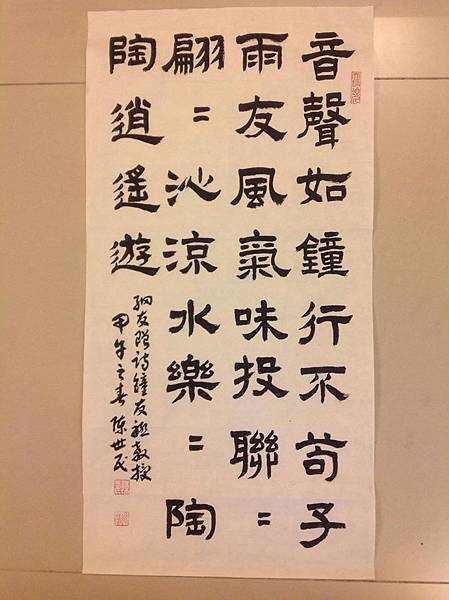 音聲如鐘行不苟子
雨友風氣味投聯〻
翩〻沁涼水樂〻陶
陶逍遙遊
網友贈詩鐘友聯教授
甲午之春 陳世民